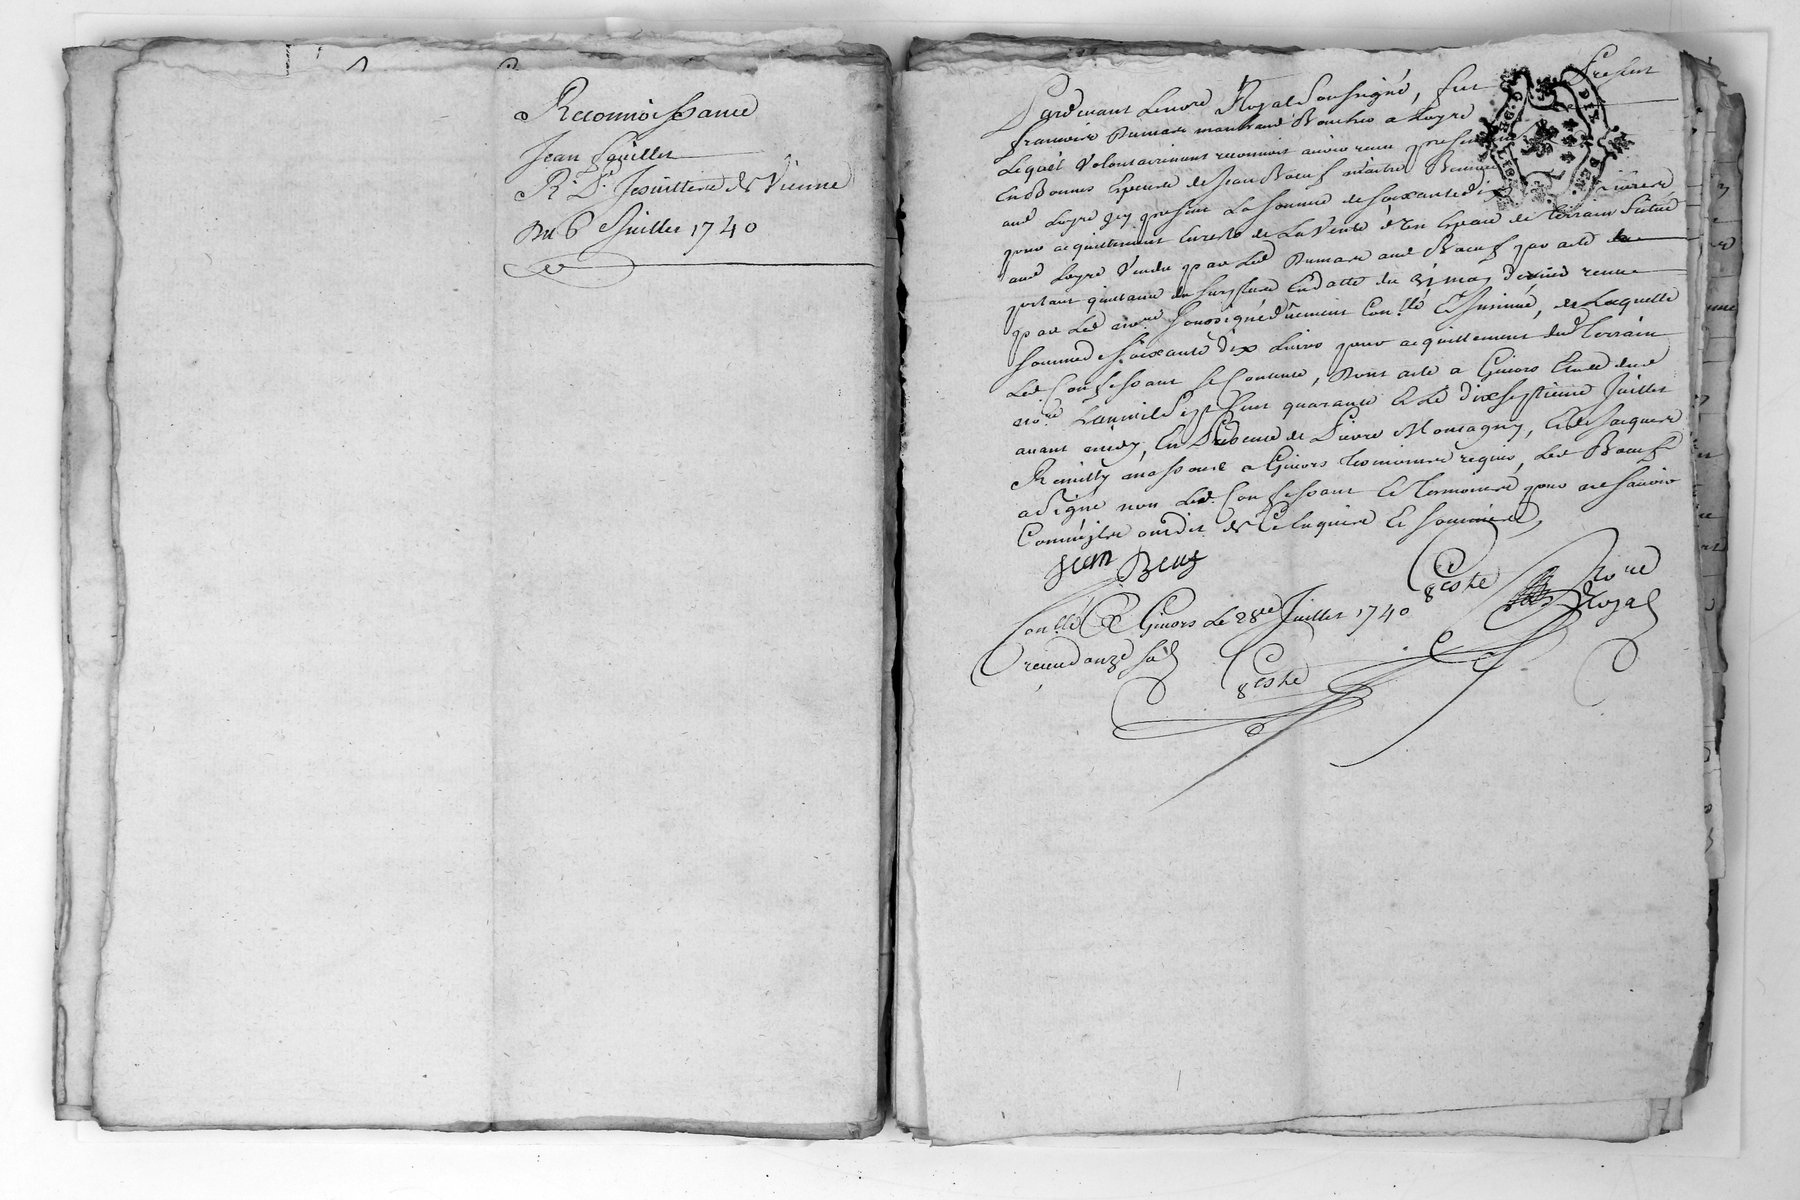 Reconnoissance
Jean Fguillet
R. P. Jesuittes de Vienne
Du 6 Juillet 1740
Pardevant Lenore Royal Soussigné, fut Present
francoise Dumare marchand Boucher a Loyre
Lequel Volontairement reconnoit avoir receu presentement
En Bonnes Especes de Jean Boeuf maitre
aud Loyre icy present La somme de soixante dix Livres
pour acquittement Cureste de La Vente d'un Espace de terrain Situé
aud Loyre Vendu par Led Dumare aud Boeuf par acte
portant quittance du surplus En datte du 31 may dernier receu
par Led nore Soussigné duement Conllé Et Insinué, de Laquelle
somme de soixante dix Livres pour acquittement dud terrain
Led Confessant se Contente, Dont acte a Givors Etude dud
nore L'an mil Sept Cent quarante Et Le dixseptieme Juillet
avant midy, En Presence de Pierre Montagny, Et de Jacques
Remilly massons a Givors temoins requis, Led Boeuf
a Signé non Led Confessant Et temoins pour ne sçavoir
Comme ils ont dit de Ce Enquis Et sommés,
Jean Beuf
Coste Nore Royal
Conllé A Givors Le 28me Juillet 1740
receu douze sols
Coste